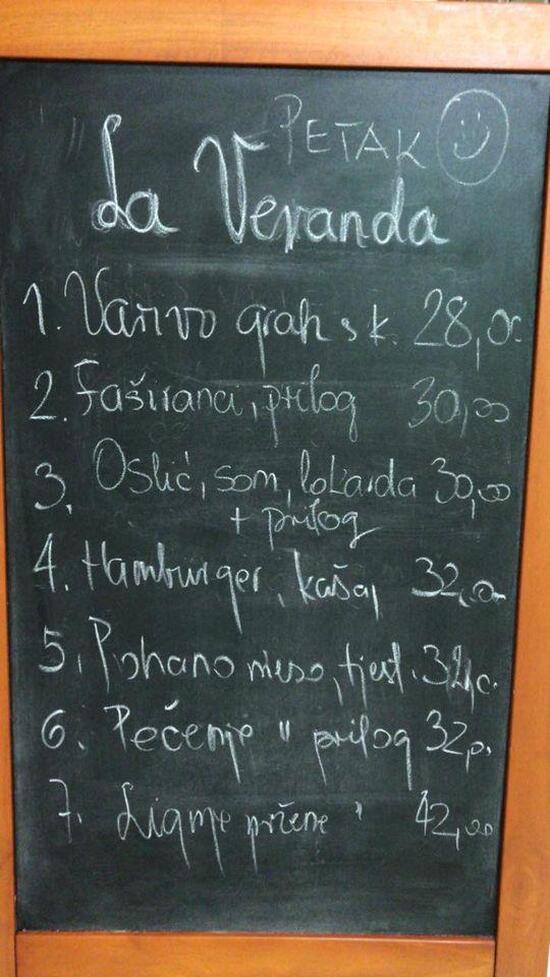 PETAK
La Veranda
1. Varivo grah s k. 28,00
2. Faširana, prilog 30,00
3. Oslić, som, lokarda 30,00
+ prilog
4. Hamburger, kašaj 32,00
5. Pohano meso, tjest.
6. Pečenje " prilog 32,00
7. Lignje pržene " 42,00